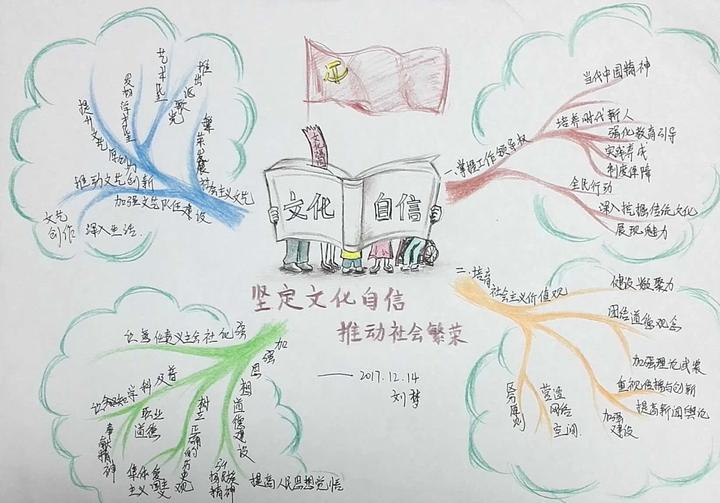 文化自信
文化
自信
坚定文化自信
推动社会繁荣
——2017.12.14
刘梦
一.掌握工作领导权
当代中国精神
培养时代新人
强化教育引导
实践养成
制度保障
全民行动
深入挖掘传统文化
展现魅力
二.培育
社会主义价值观
建设
凝聚力
团结道德观念
加强理论武装
重视传播与创新
提高新闻舆论
加强
建设
营造
网络
空间
区分原则
加强思想道德建设
提高人民思想觉悟
弘扬民族精神
树立正确的历史观
集体
主义
爱国
主义
职业
道德
奉献精神
学科及普
繁荣发展
社会主义文艺
推出
讴歌党
艺术
发扬学术
提升文艺原创力
推动文艺创新
加强文艺队伍建设
文艺
创作
深入生活